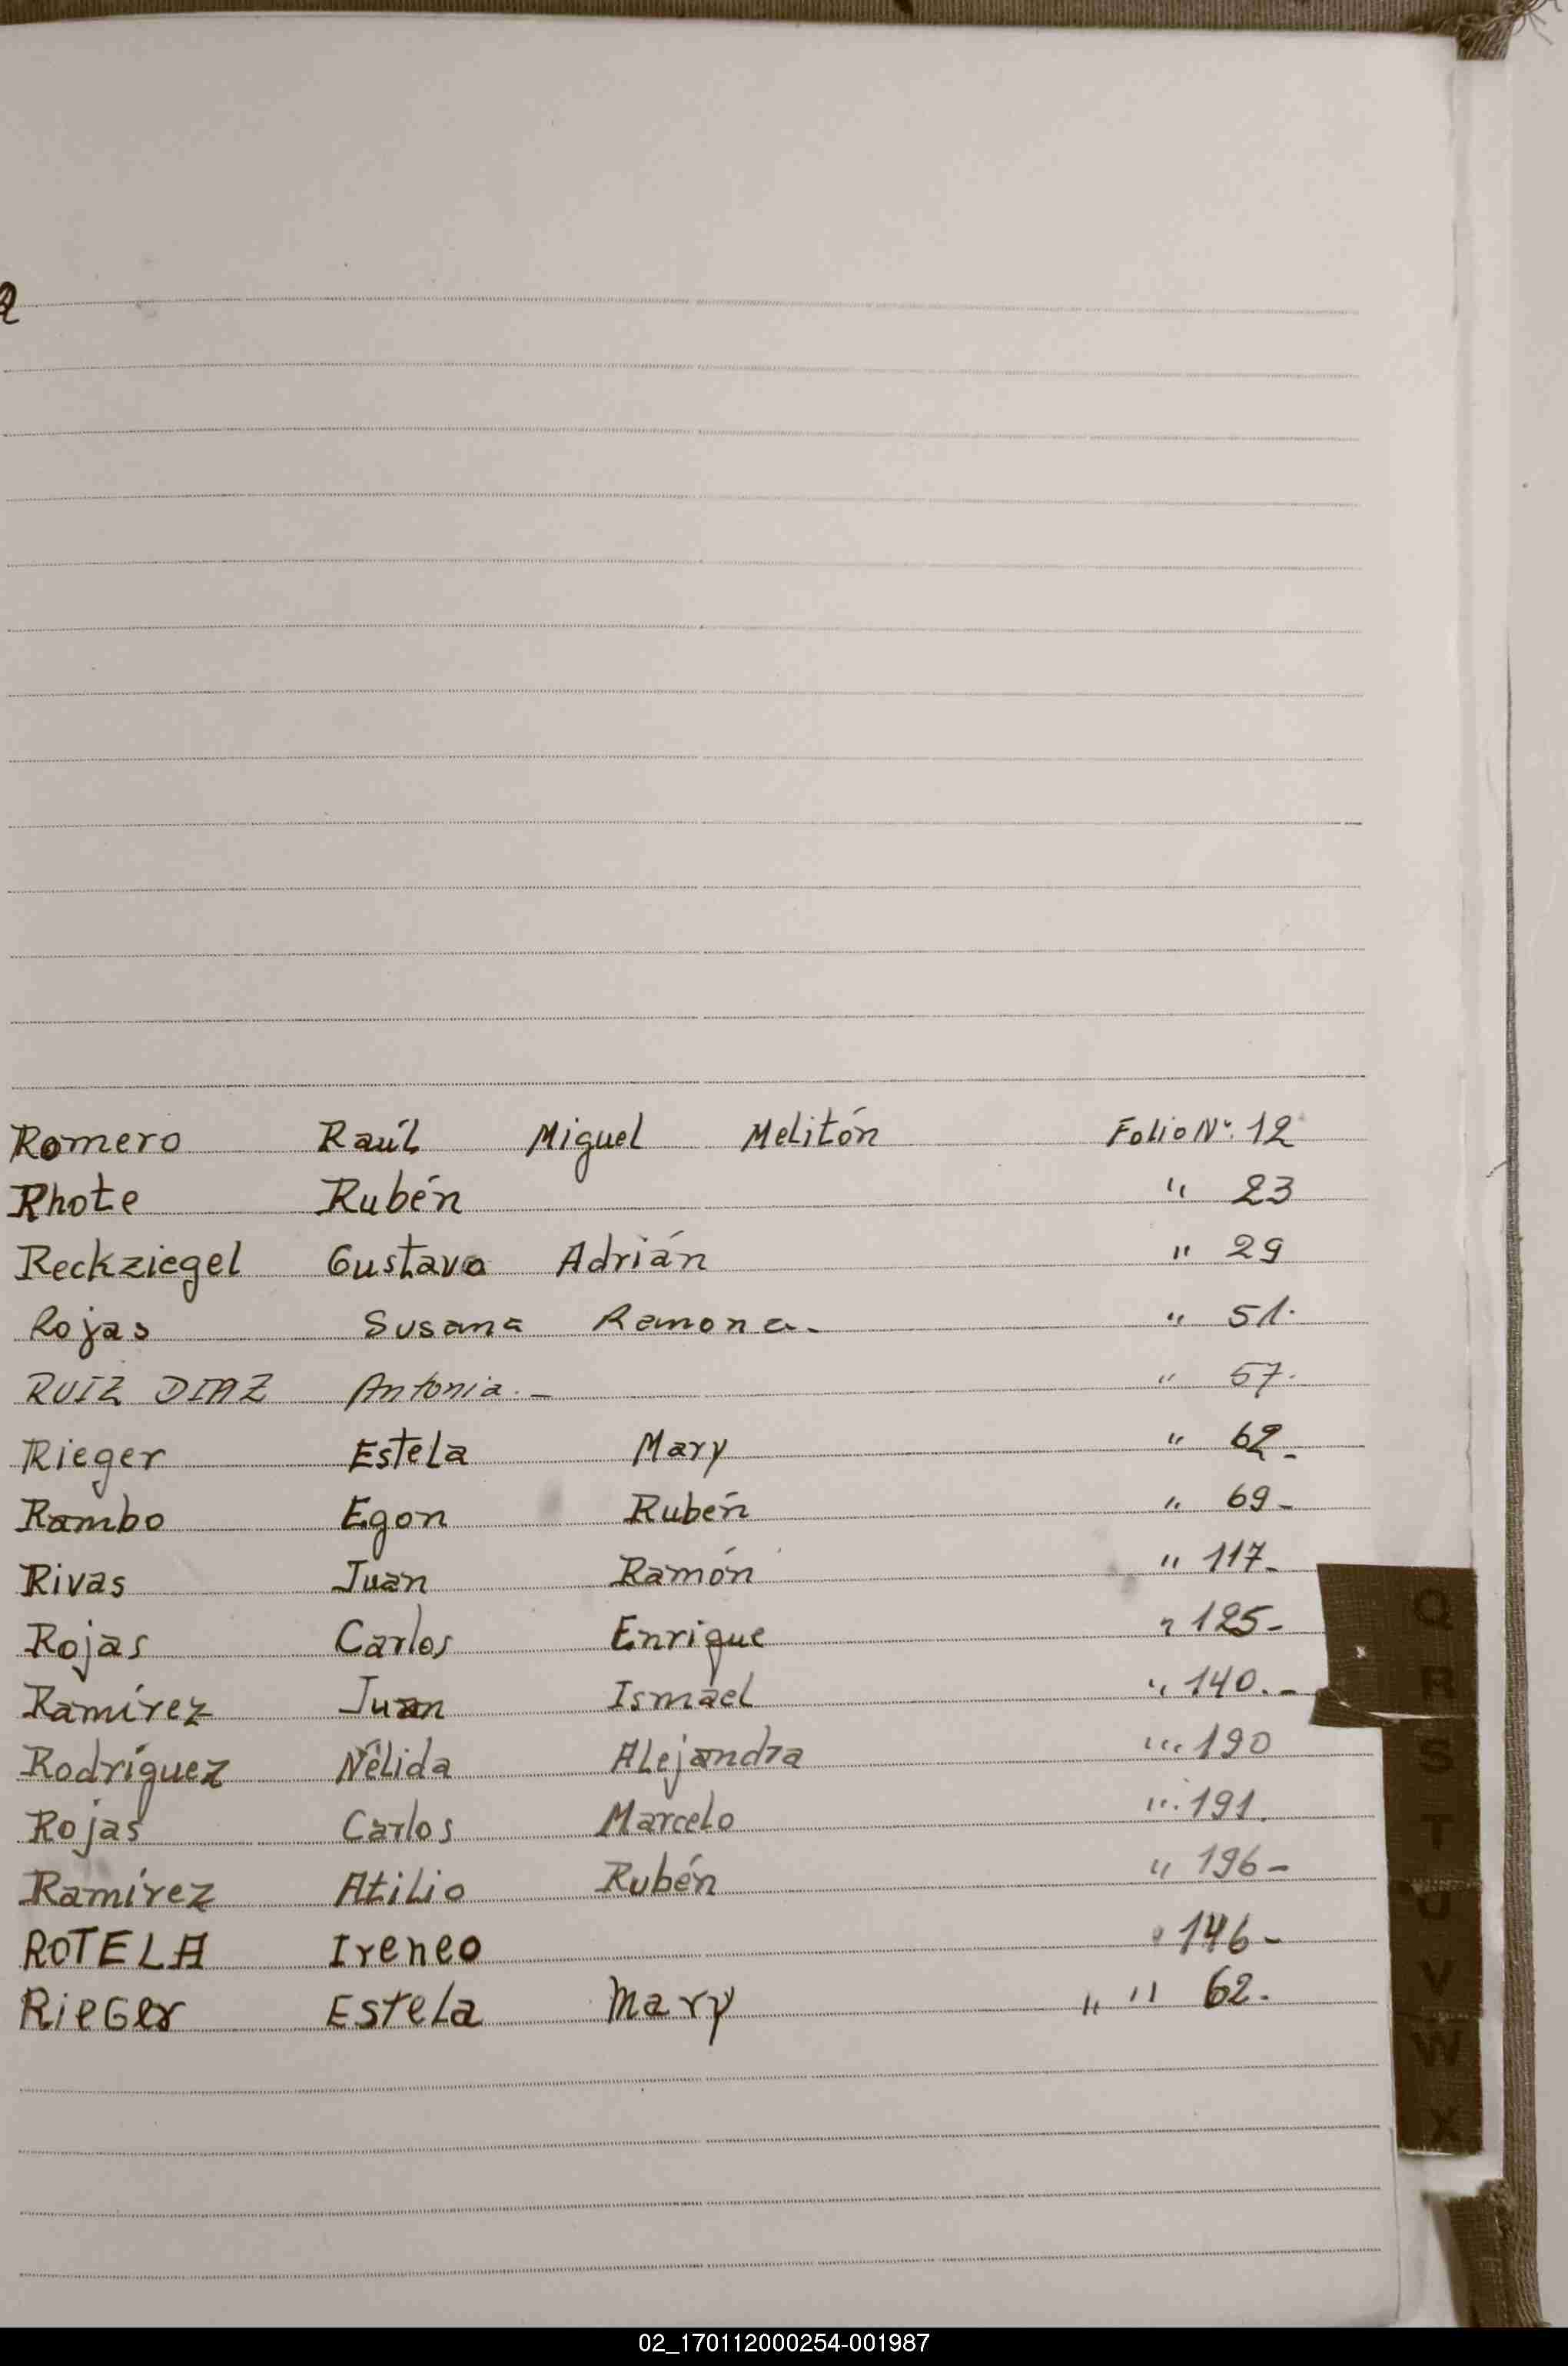 Romero Raúl Miguel Melitón Folio Nº. 12
Rhote Rubén " 23
Reckziegel Gustavo Adrián " 29
Rojas Susana Ramona.- " 51.
RUIZ DIAZ Antonia.- " 57.
Rieger Estela Mary " 62.-
Rambo Egon Rubén " 69-
Rivas Juan Ramón " 117-
Rojas Carlos Enrique " 125-
Ramírez Juan Ismael " 140.-
Rodríguez Nélida Alejandra " 190
Rojas Carlos Marcelo " 191.
Ramírez Atilio Rubén " 196-
ROTELA Ireneo " 146-
RieGer Estela Mary " " 62.
Q
R
S
T
U
V
W
X
02_170112000254-001987